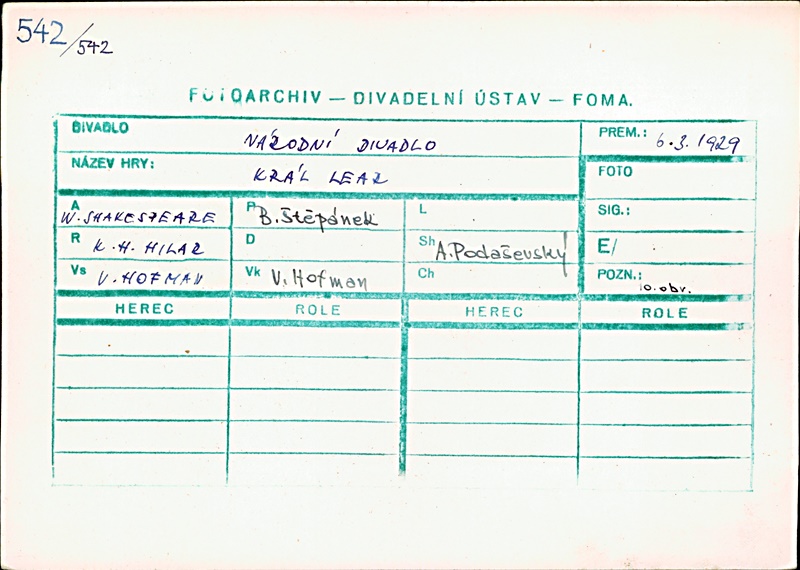 542/542
FOTOARCHIV — DIVADELNÍ ÚSTAV — FOMA.
DIVADLO NÁRODNÍ DIVADLO PREM.: 6.3.1929
NÁZEV HRY: KRÁL LEAR FOTO
A W. SHAKESPEARE P B. Štěpánek L SIG.:
R K. H. HILAR D Sh A. Podaševský E/
Vs V. HOFMAN Vk V. Hofman Ch POZN.: 10. obr.
HEREC ROLE HEREC ROLE